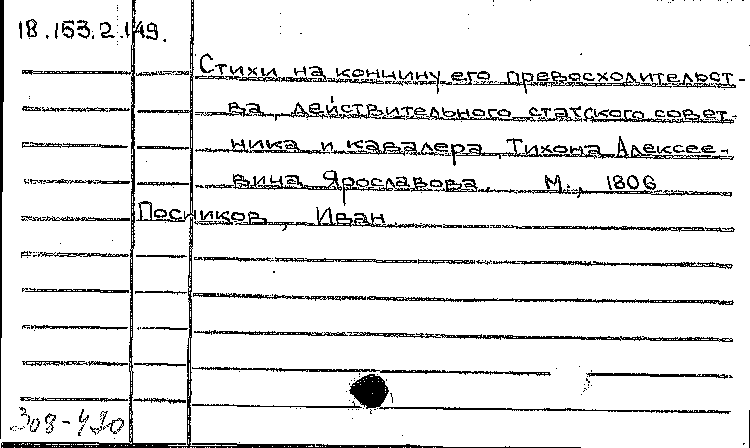 18.153.2.149.
Стихи на кончину его превосходительст-
ва, действительного статского совет-
ника и кавалера Тихона Алексее-
вича Ярославова. М., 1806
Посников, Иван.
308-420